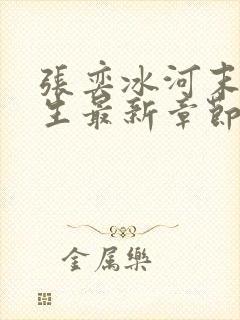 張奕冰河末
生最新章節
金属樂